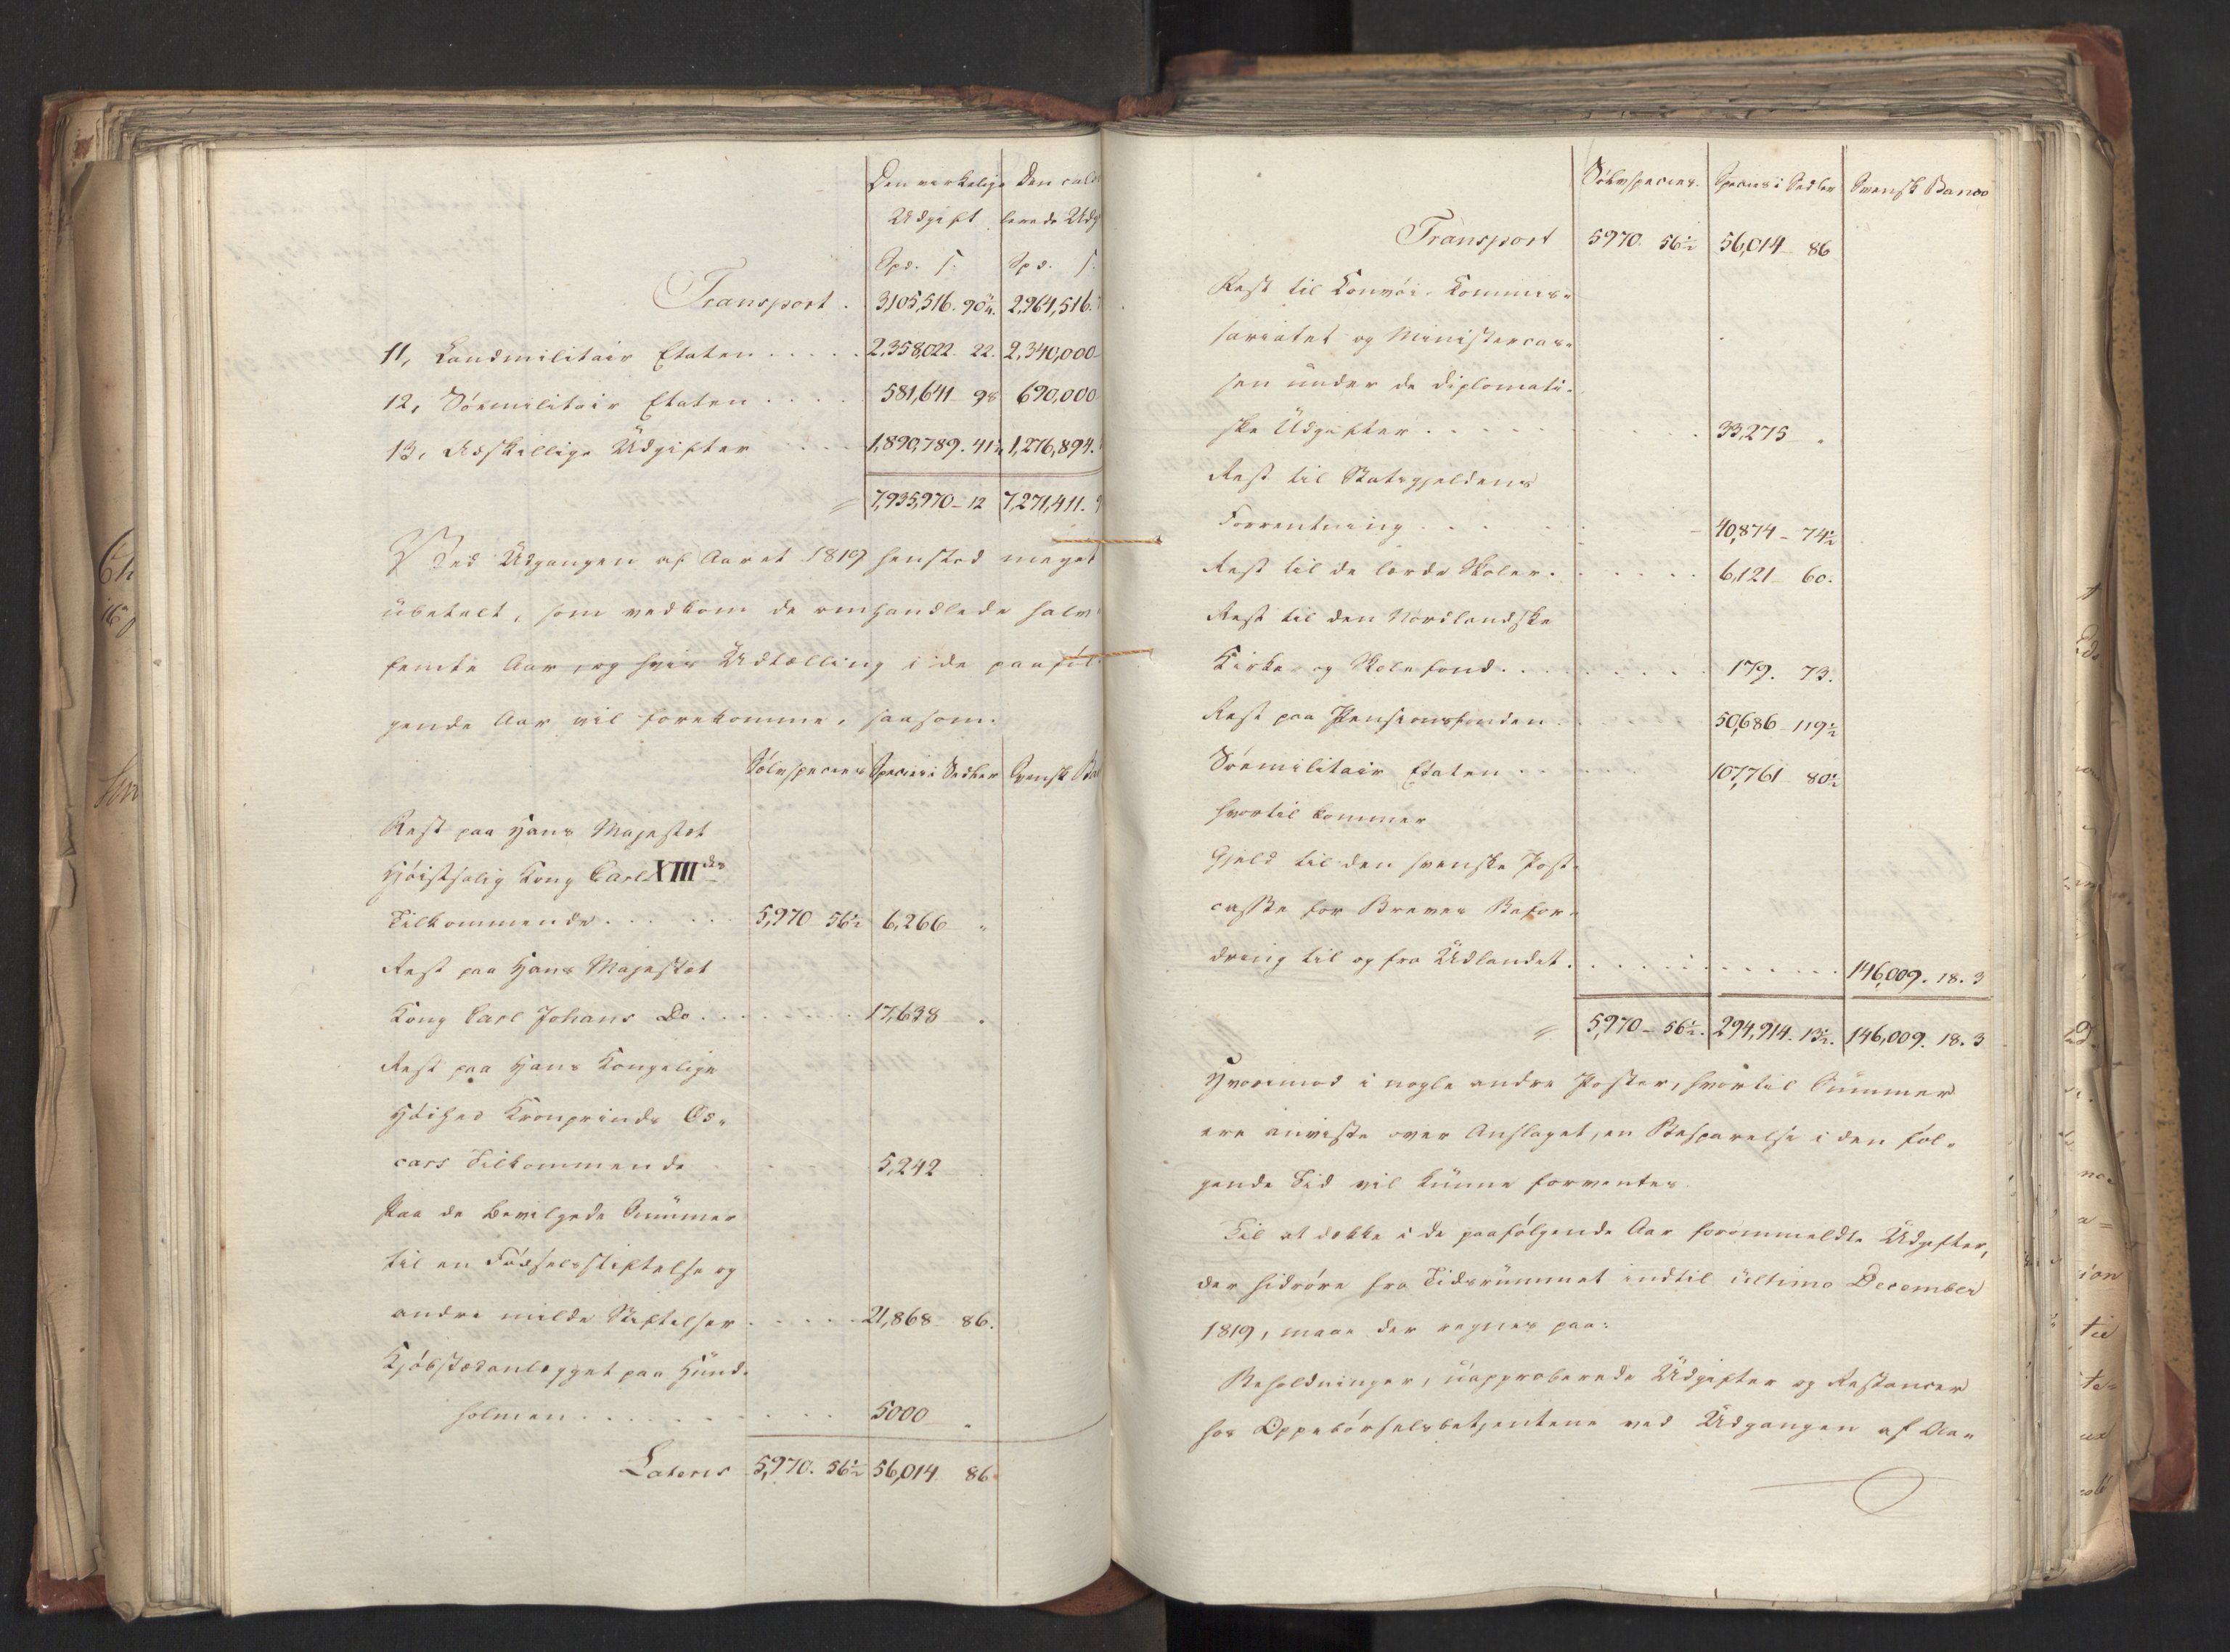 Den virkelige Den calcu
Udgift lerede Udg
Spd. ſ. Spd. ſ.
Transport . 3,105,516. 90¾. 2,964,516.
11, Landmilitair Etaten . . . . . 2,358,022. 22. 2,340,000
12, Söemilitair Etaten . . . . 581,641 98 690,000
13, Adskillige Udgifter . . . . 1,890,789. 41¼ 1,276,894.
= 7,935,970 - 12 7,271,411.
Ved Udgangen af Aaret 1819 henstod meget
ubetalt, som vedkom de omhandlede halv-
femte Aar, og hvis Udtælling i de paaföl-
gende Aar vil forekomme, saasom:
Sölvspecies Species i Sedler Svensk Ba
Rest paa Hans Majestæt
Höistsalig Kong Carl XIII des
Tilkommende . . . . . . 5,970 56½ 6,266 "
Rest paa Hans Majestæt
Kong Carl Johans Do . . . . . . . . 17,638 - "
Rest paa Hans Kongelige
Höihed Kronprinds Os-
cars Tilkommende 5,242
Paa de bevilgede Summer
til en Födselsstiftelse og
andre milde Stiftelser . . . . . 21,868 - 86.
Kjöbstædanlægget paa Hund-
holmen . . . . . . . . . . 5000 "
Lateris 5,970. 56½ 56,014 86
Sölvspecies. Species i Sedler Svensk Banco
Transport 5970. 56½ 56,014 - 86
Rest til Konvöi-Kommis-
sariatet og Ministercas-
sen under de diplomati-
ske Udgifter . . . . . . . . 33,275 "
Rest til Statsgjeldens
Forrentning . . . . . . 40,874 - 74½
Rest til de lærde Skoler . . . . . . 6,121 - 60.
Rest til den Nordlandske
Kirke- og Skolefond . . . . . . . 179. 73.
Rest paa Pensionsfonden . . . . 50,686 - 119½
Söemilitair Etaten . . . . . 107,761 - 80½
hvortil kommer
Gjeld til den svenske Post-
casse for Breves Befor-
dring til og fra Udlandet . . . . . . . . . . . 146,009. 18. 3
= 5,970 - 56½. 294,914. 13½. 146,009. 18. 3
Hvorimod i nogle andre Poster, hvortil Summer
ere anviste over Anslaget, en Besparelse i den föl-
gende Tid vil kunne forventes.
Til at dække i de paafölgende Aar forommeldte Udgifter,
der hidröre fra Tidsrummet indtil ultimo December
1819, maae der regnes paa:
Beholdninger, uapproberede Udgifter og Restancer
hos Oppebörselsbetjentene ved Udgangen af Aa-